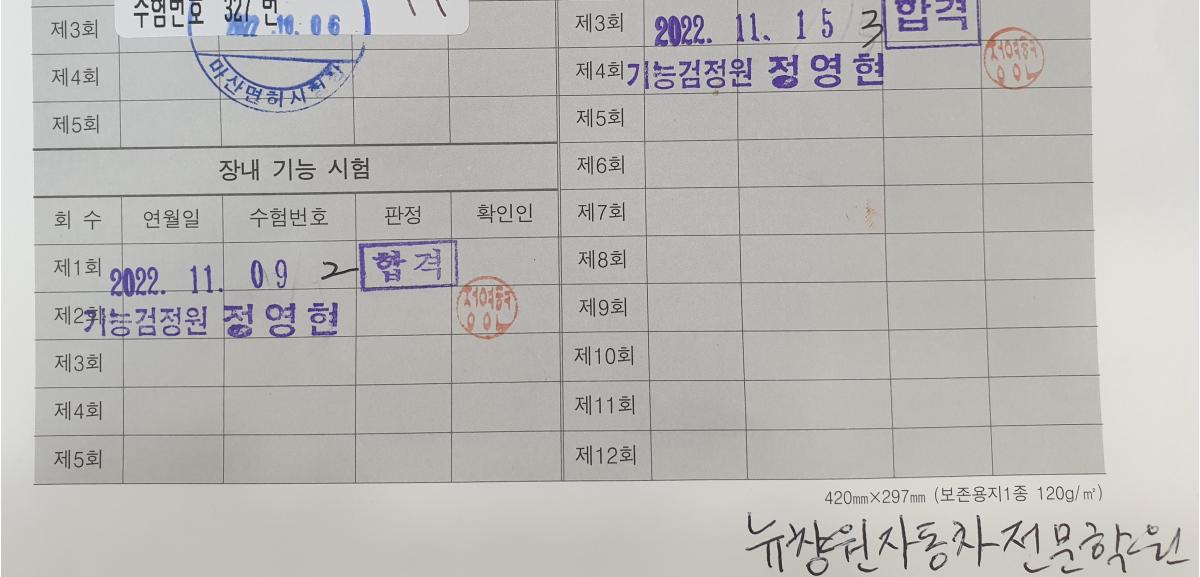 수험번호 327번
제3회 2022.10.06
제4회
마산면허시험장
제5회
장내 기능 시험
회 수 연월일 수험번호 판정 확인인
제1회 2022. 11. 09 2 합격
제2회 기능검정원 정영현
제3회
제4회
제5회
제3회 2022. 11. 15 3 합격
제4회 기능검정원 정영현
제5회
제6회
제7회
제8회
제9회
제10회
제11회
제12회
420㎜×297㎜ (보존용지1종 120g/㎡)
뉴창원자동차전문학원